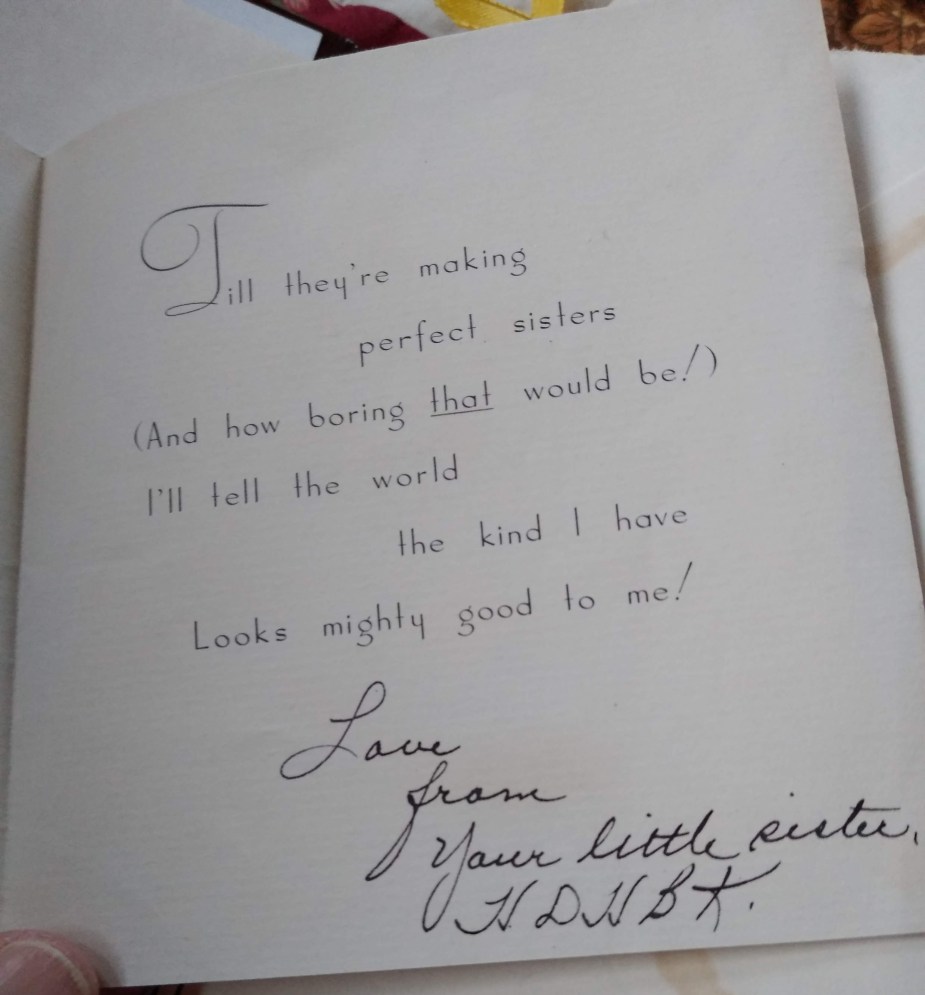 Till they're making
perfect sisters
(And how boring that would be!)
I'll tell the world
the kind I have
Looks mighty good to me!
Love
from
Your little sister,
H D H B K.